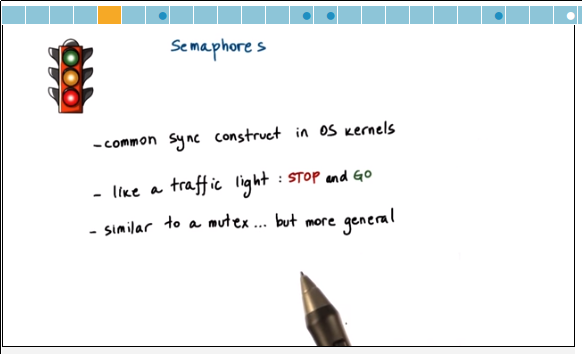 Semaphores
- common sync construct in OS kernels
- like a traffic light : STOP and GO
- similar to a mutex... but more general